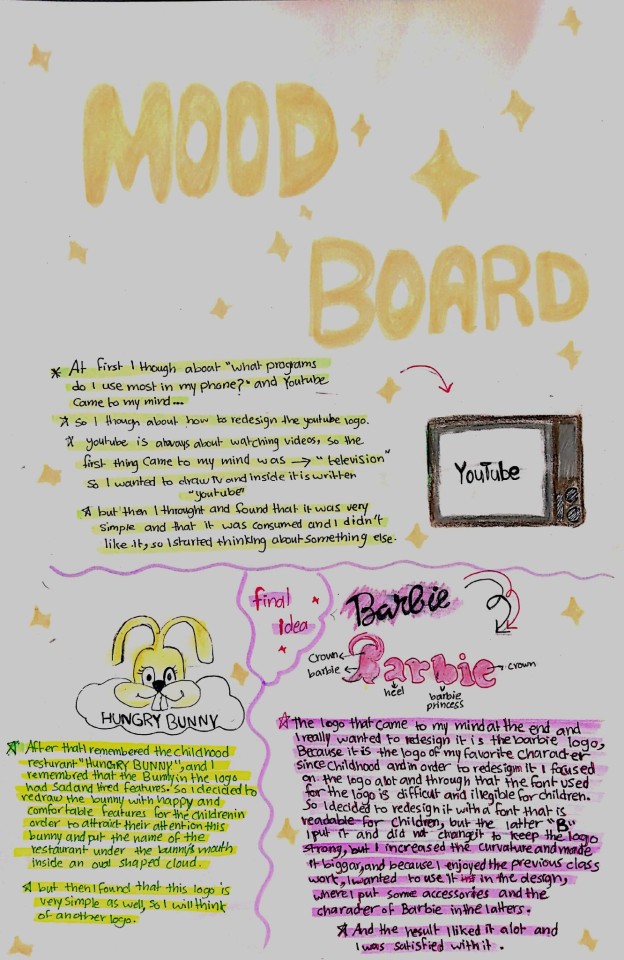 MOOD
BOARD
At first I though about "what programs
do I use most in my phone?" and Youtube
came to my mind...
So I though about how to redesign the youtube logo.
youtube is always about watching videos, so the
first thing came to my mind was → "television"
so I wanted to draw TV and inside it is written
"youtube"
but then I throught and found that it was very
simple and that it was consumed and I didn't
like it, so I started thinking about something else.
YouTube
final
idea
Barbie
Barbie
crown
barbie
heel
barbie
princess
crown
HUNGRY BUNNY
After that I remembered the childhood
resturant "HUNGRY BUNNY", and I
remembred that the Bunny in the logo
had sad and tired features. So I decided to
redraw the bunny with happy and
comfortable features for the children in
order to attract their attention this
bunny and put the name of the
restaurant under the bunny's mouth
inside an oval shaped cloud.
but then I found that this logo is
very simple as well, so I will think
of another logo.
The logo that came to my mind at the end and
I really wanted to redesign it is the barbie logo,
Because it is the logo of my favorite character
since childhood and in order to redesign it I focused
on the logo alot and through that the font used
for the logo is difficult and illegible for children.
So I decided to redesign it with a font that is
readable for children, but the latter "B"
I put it and did not change it to keep the logo
strong, but I increased the curvature and made
it biggar, and because I enjoyed the previous class
work, I wanted to use it in the design,
where I put some accessories and the
character of Barbie in the latters.
And the result I liked it alot and
I was satisfied with it.